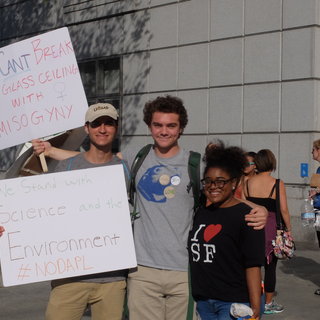 CANT BREAK
GLASS CEILING
WITH
MISOGYNY
We Stand with
Science and the
Environment
#NODAPL
I
SF